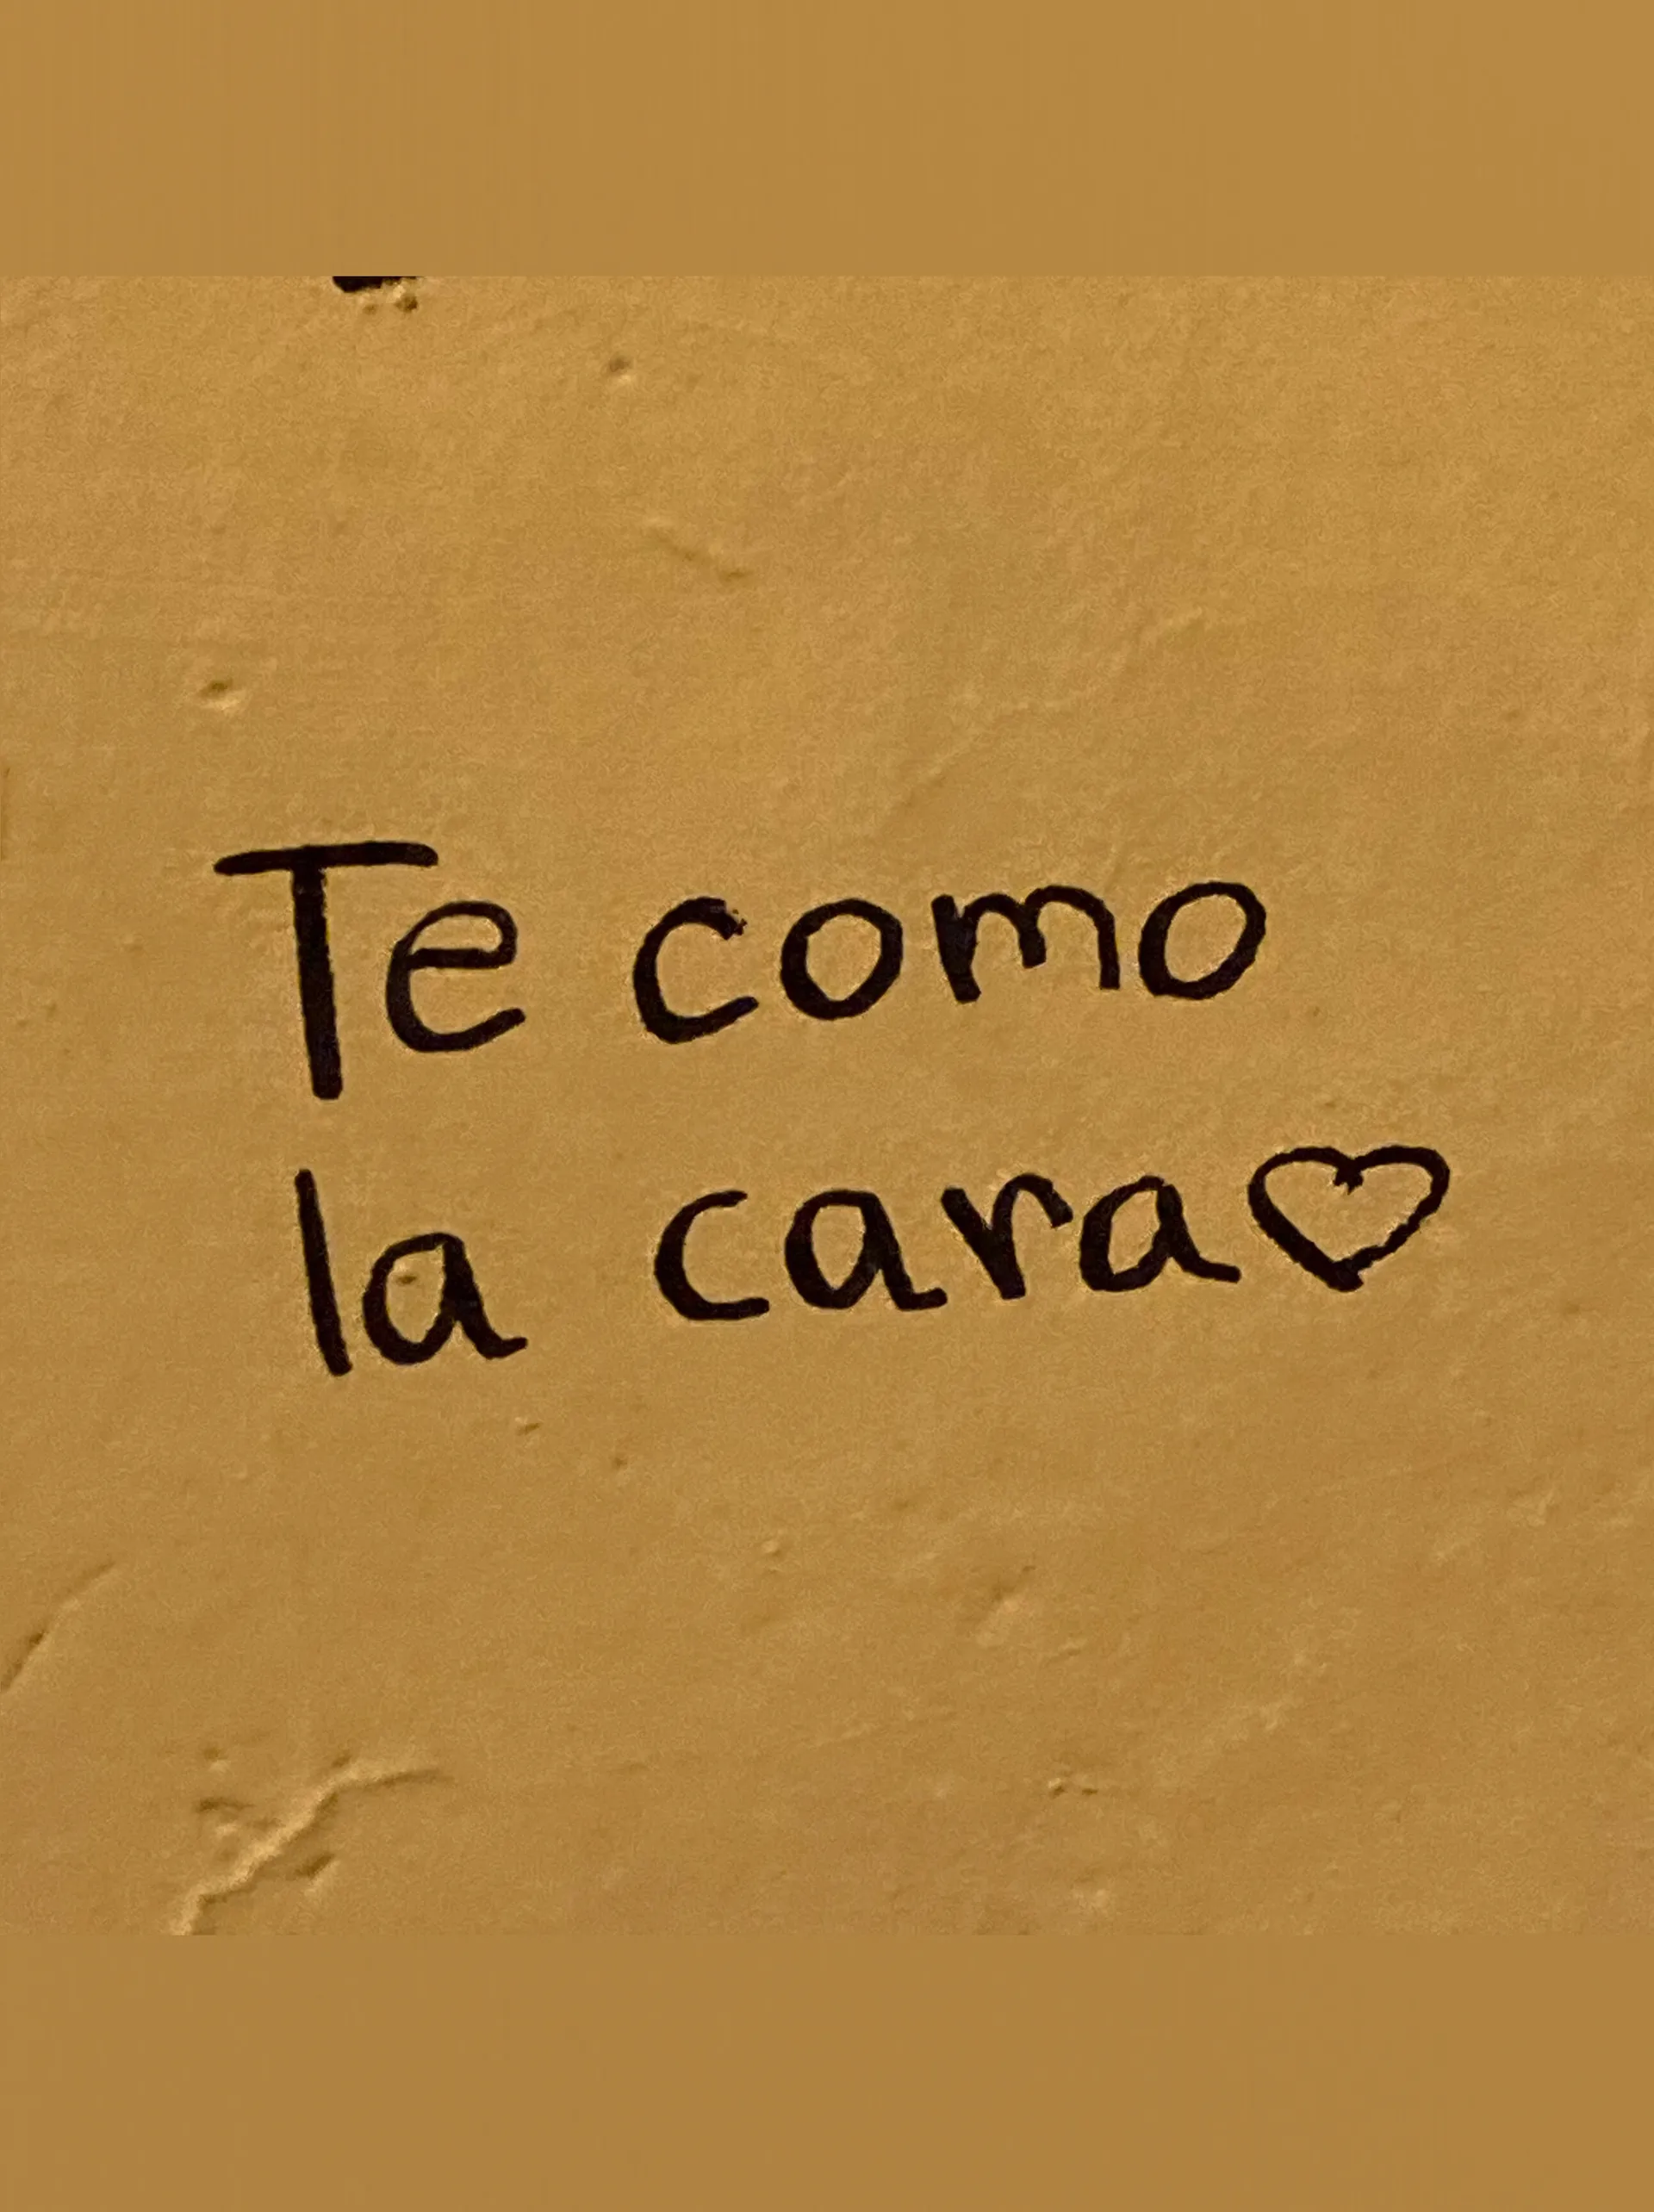 Te como
la cara♡